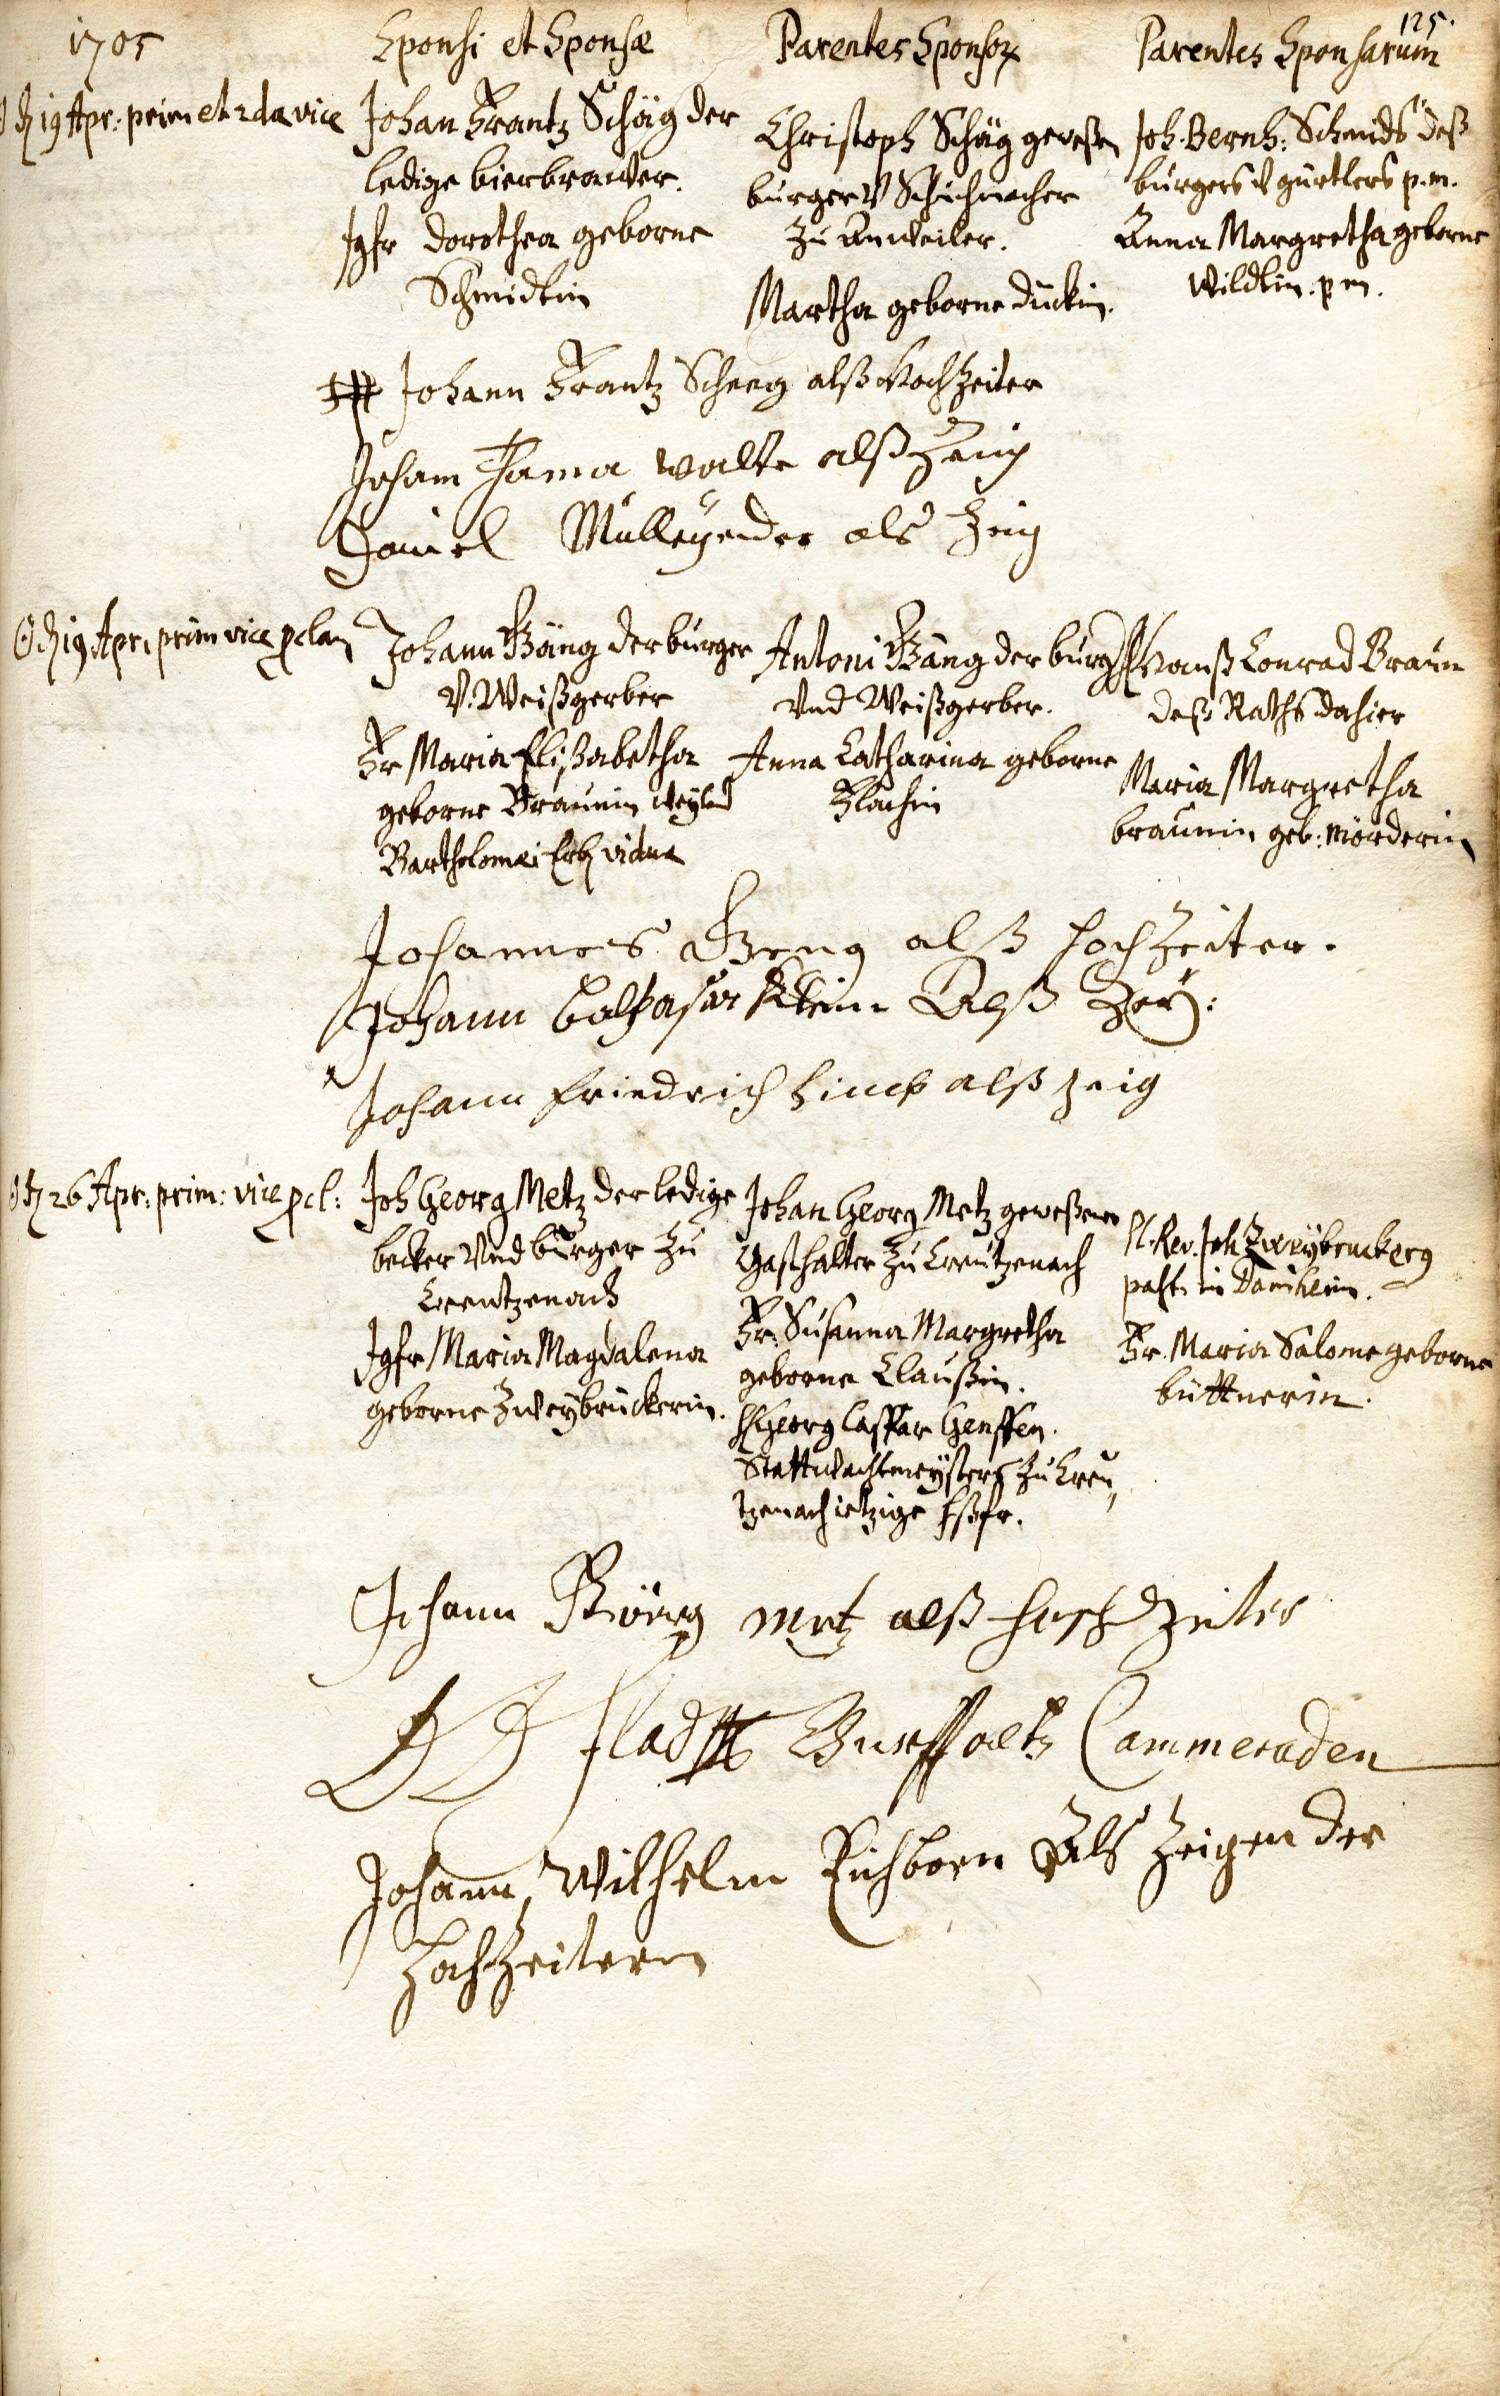 125.
1705
Sponsi et Sponsæ
Parentes Sponsoꝝ
Parentes Sponsarum
19 Apr: prim et 2da vice
Johan Frantz Schäg der
ledige bierbrauer.
Jgfr Dorothea geborne
Schmidtin
Christoph Schäg geweßen
burger V Schuhmacher
zu Anweiler.
Martha geborne Dückin.
Joh. Bernh: Schmids deß
burgers V gürtlers p.m.
Anna Margretha geborne
Wildtin. p m.
Johann Frantz Scheeg alß Hochzeiter
Johann walte alß Zeug
Daniel als Zeig
19 Apr. prim vice pclam
Johann Gäng der burger
V. Weißgerber
Fr Maria Elißabetha
geborne Braunin weyland
Bartholomæi Erb vidua
Antoni Gäng der burger
Vnd Weißgerber.
Anna Catharina geborne
Flachin
Hanß Conrad Braun
deß Raths dahier
Maria Margretha
braunin geb: mörderin
Johannes Geng alß hochzeiter.
Johann Baltzasar Klein Alß Zeüg:
Johann friedrich alß zeig
26 Apr: prim: vice pcl:
Joh Georg Metz der ledige
becker Vnd burger zu
Creutzenach
Jgfr Maria Magdalena
geborne Zweybrückerin.
Johan Georg Metz geweßener
Gasthalter zu Creutzenach
Fr. Susanna Margretha
geborne Claußin.
H Georg Caspar Genssen.
Stattwachtmeysters zu Creu,
tzenach ietzige Hßfr.
Pl. Rev. Joh Zweybruckers
past. in
Fr. Maria Salome geborne
büttnerin.
Johann Görg metz alß hochzeiter
Cammeraden
Johann Wilhelm Eichborn Als Zeigen der
Hochzeitern